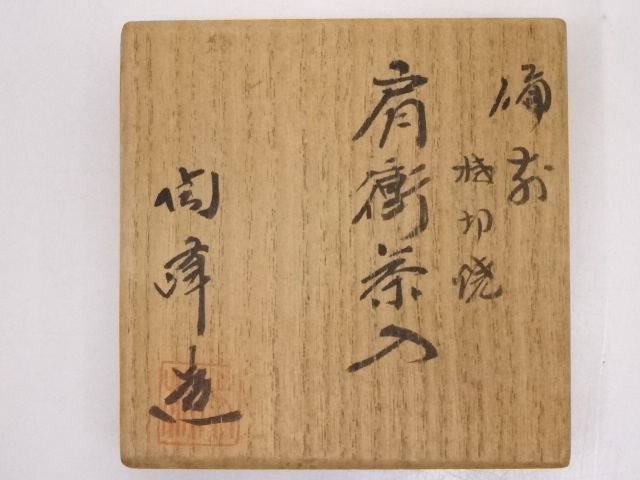 備前
桟切焼
肩衝茶入
陶峰造